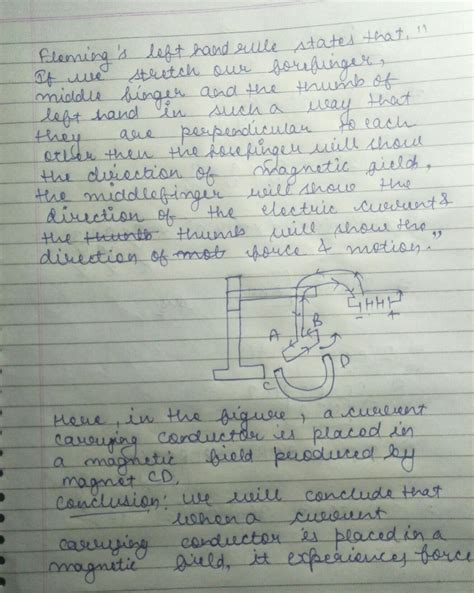 Fleming's left hand rule states that, "
If we stretch our forefinger,
middle finger and the thumb of
left hand in such a way that
they are perpendicular to each
other then the forefinger will show
the direction of magnetic field,
the middlefinger will show the
direction of the electric current &
the thumb thumb will show the
direction of mot force & motion."
- +
A B
C D
Here, in the figure, a current
carrying conductor is placed in
a magnetic field produced by
magnet CD.
Conclusion: we will conclude that
when a current
carrying conductor is placed in a
magnetic field, it experiences force